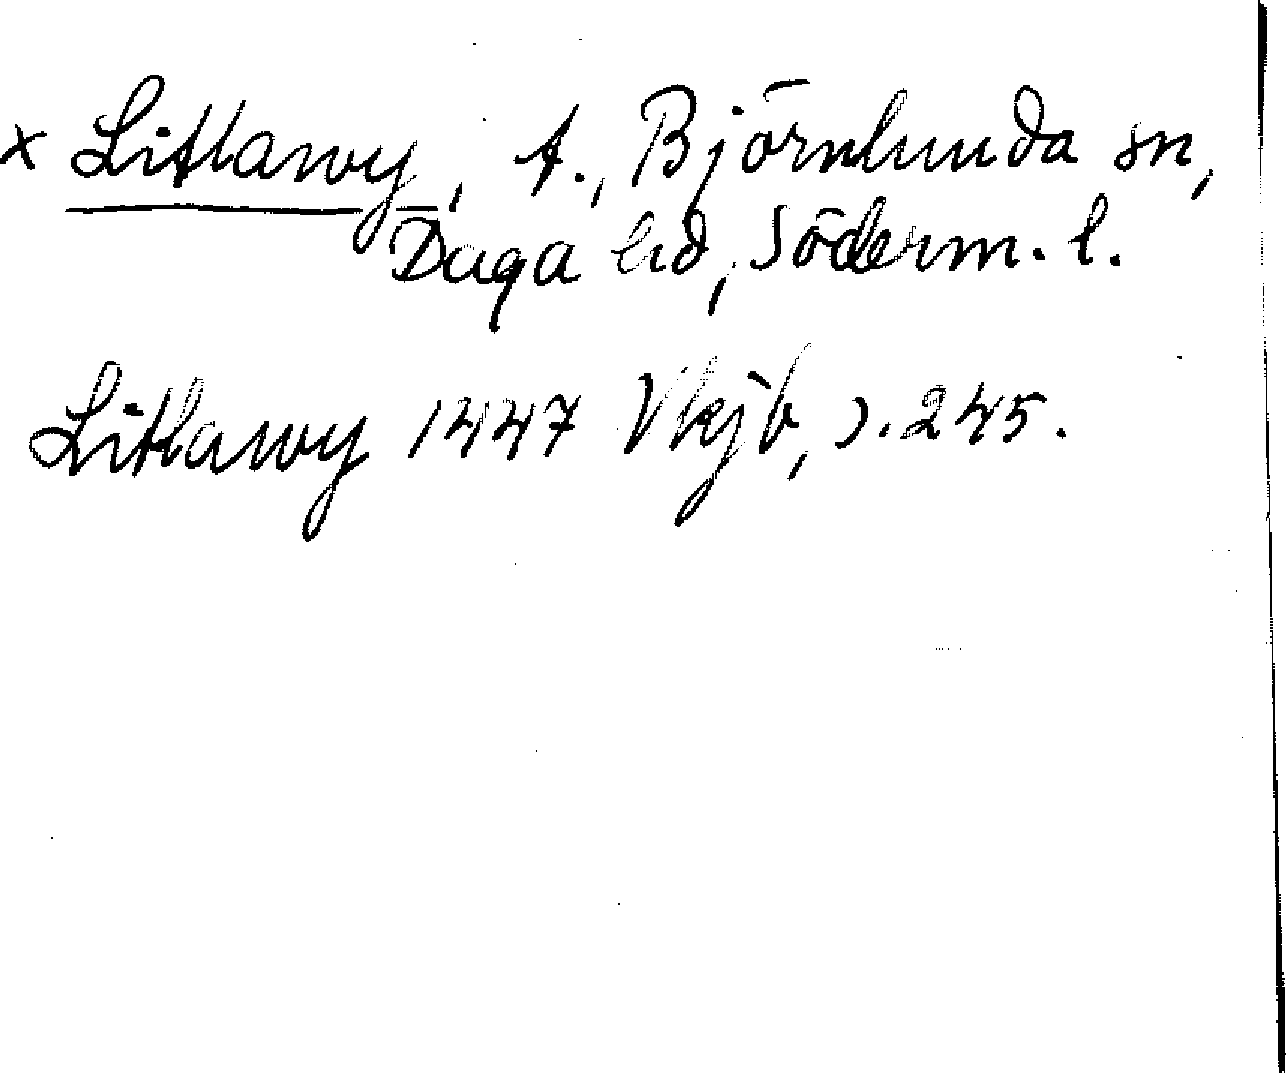 x Litlawy, t., Björnlunda sn,
Daga hd, Söderm. l.
Litlawy 1447 Vkjb, s. 245.